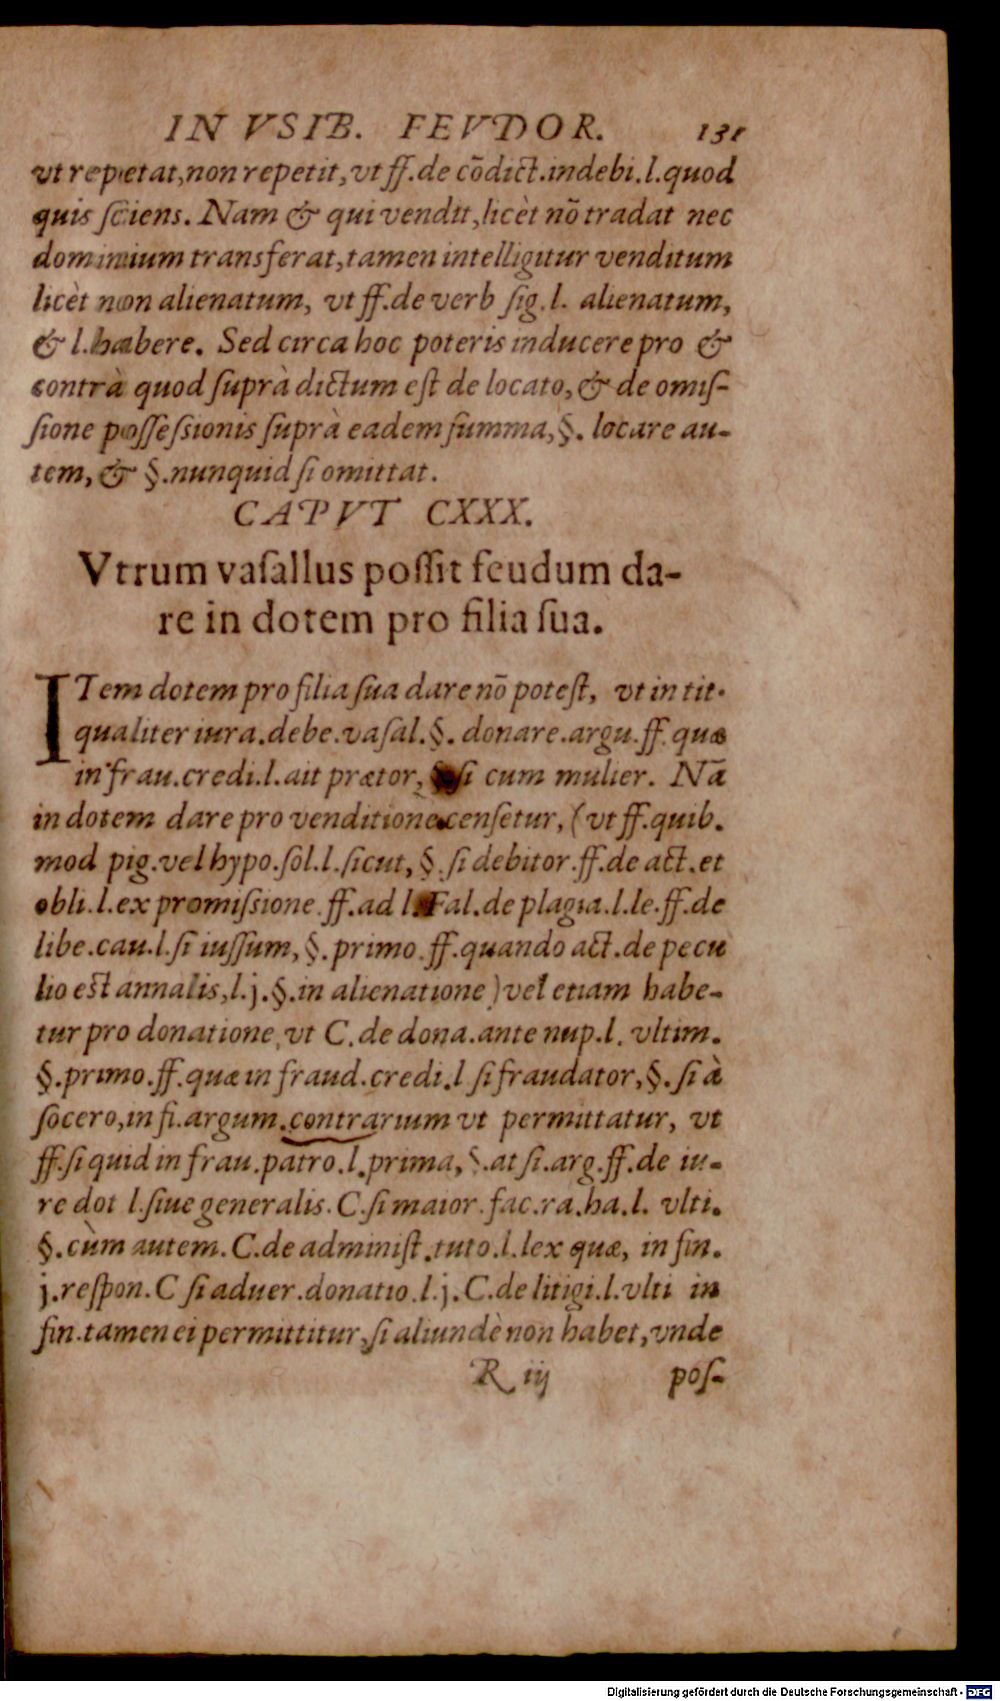 IN VSIB. FEVDOR. 131
vt repetat, non repetit, vt ff. de cõdict. indebi. l. quod
quis ſciens. Nam & qui vendit, licèt nõ tradat nec
dominium transferat, tamen intelligitur venditum
licèt non alienatum, vt ff. de verb ſig. l. alienatum,
& l. habere. Sed circa hoc poteris inducere pro &
contrà quod ſuprà dictum eſt de locato, & de omiſ-
ſione poſſeſsionis ſuprà eadem ſumma, §. locare au-
tem, & §. nunquid ſi omittat.
CAPVT CXXX.
Vtrum vaſallus poſſit feudum da-
re in dotem pro filia ſua.
ITem dotem pro filia ſua dare nõ poteſt, vt in tit.
qualiter iura. debe. vaſal. §. donare. argu. ff. quæ
in frau. credi. l. ait prætor, § ſi cum mulier. Nã
in dotem dare pro venditione cenſetur, (vt ff. quib.
mod pig. vel hypo. ſol. l. ſicut, §. ſi debitor. ff. de act. et
obli. l. ex promiſsione. ff. ad l. Fal. de plagia. l. le. ff. de
libe. cau. l. ſi iuſſum, §. primo. ff. quando act. de pecu
lio eſt annalis, l. j. §. in alienatione) vel etiam habe-
tur pro donatione, vt C. de dona. ante nup. l. vltim.
§. primo. ff. quæ in fraud. credi. l ſi fraudator, §. ſi à
ſocero, in fi. argum. contrarium vt permittatur, vt
ff. ſi quid in frau. patro. l. prima, §. at ſi. arg. ff. de iu-
re dot l. ſiue generalis. C. ſi maior. fac. ra. ha. l. vlti.
§. cùm autem. C. de adminiſt. tuto. l. lex quæ, in fin.
j. reſpon. C ſi aduer. donatio. l. j. C. de litigi. l. vlti in
fin. tamen ei permittitur, ſi aliundè non habet, vnde
R iij poſ-
Digitalisierung gefördert durch die Deutsche Forschungsgemeinschaft - DFG